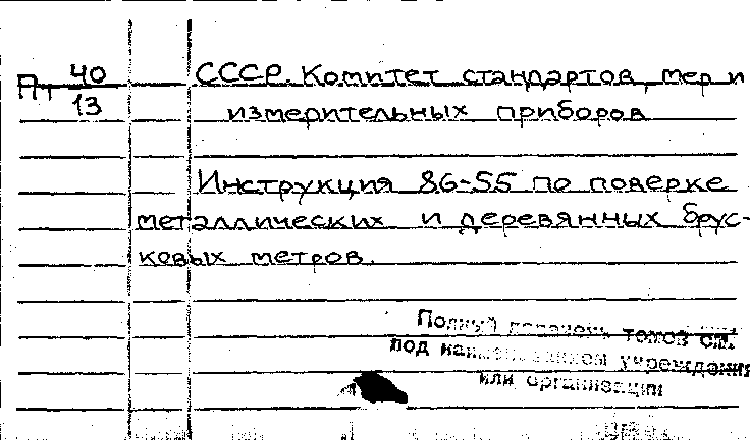 Пт 40/13
СССР. Комитет стандартов, мер и
измерительных приборов
Инструкция 86-55 по поверке
металлических и деревянных брус-
ковых метров.
Полный перечень томов см.
под наименованием учреждения
или организации